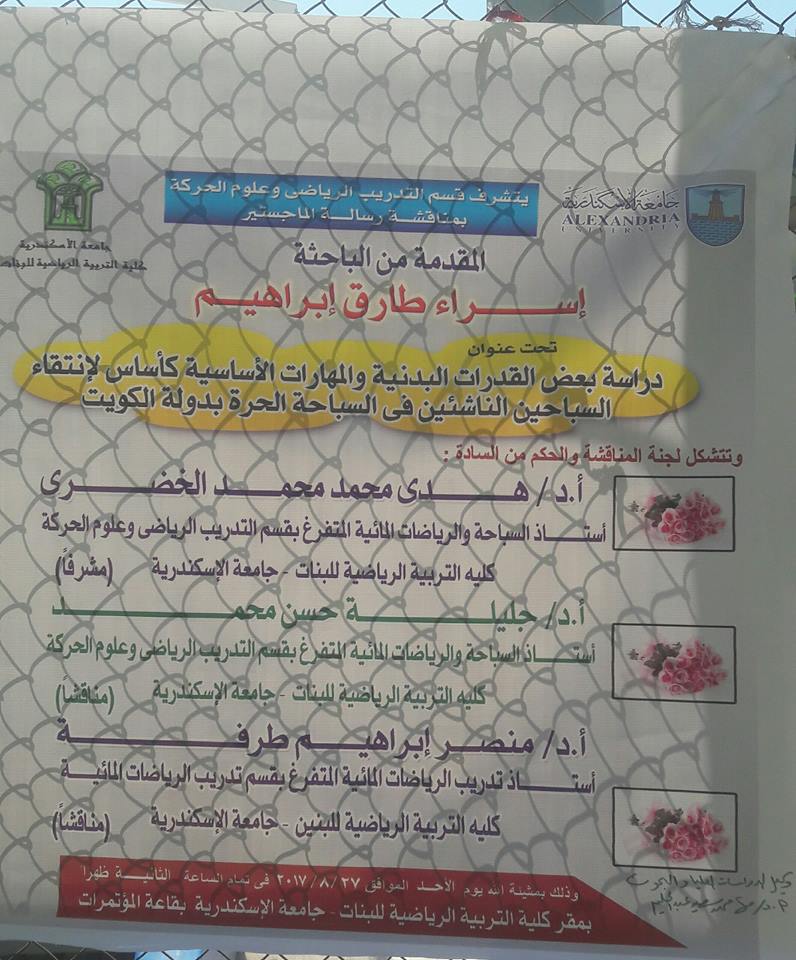 يتشرف قسم التدريب الرياضى وعلوم الحركة
بمناقشة رسالة الماجستير
جامعة الإسكندرية
ALEXANDRIA
UNIVERSITY
جامعة الأسكندرية
كلية التربية الرياضية للبنات
المقدمة من الباحثة
إســراء طارق إبراهيم
تحت عنوان
دراسة بعض القدرات البدنية والمهارات الأساسية كأساس لإنتقاء
السباحين الناشئين فى السباحة الحرة بدولة الكويت
وتتشكل لجنة المناقشة والحكم من السادة :
أ.د/ هــدى محمد محمــد الخضــرى
أستــاذ السباحة والرياضات المائية المتفرغ بقسم التدريب الرياضى وعلوم الحركة
كليه التربية الرياضية للبنات - جامعة الإسكندرية (مشرفاً)
أ.د/ جليلــة حسن محمــد
أستــاذ السباحة والرياضات المائية المتفرغ بقسم التدريب الرياضى وعلوم الحركة
كليه التربية الرياضية للبنات - جامعة الإسكندرية (مناقشاً)
أ.د/ منصــر إبراهيــم طرفــة
أستــاذ تدريب الرياضات المائية المتفرغ بقسم تدريب الرياضات المائية
كليه التربية الرياضية للبنين - جامعة الإسكندرية (مناقشاً)
وذلك بمشيئة الله يوم الأحد الموافق ٢٧/ ٨/ ٢٠١٧ فى تمام الساعة الثانية ظهراً
بمقر كلية التربية الرياضية للبنات - جامعة الإسكندرية بقاعة المؤتمرات
وكيل الدراسات العليا والبحوث